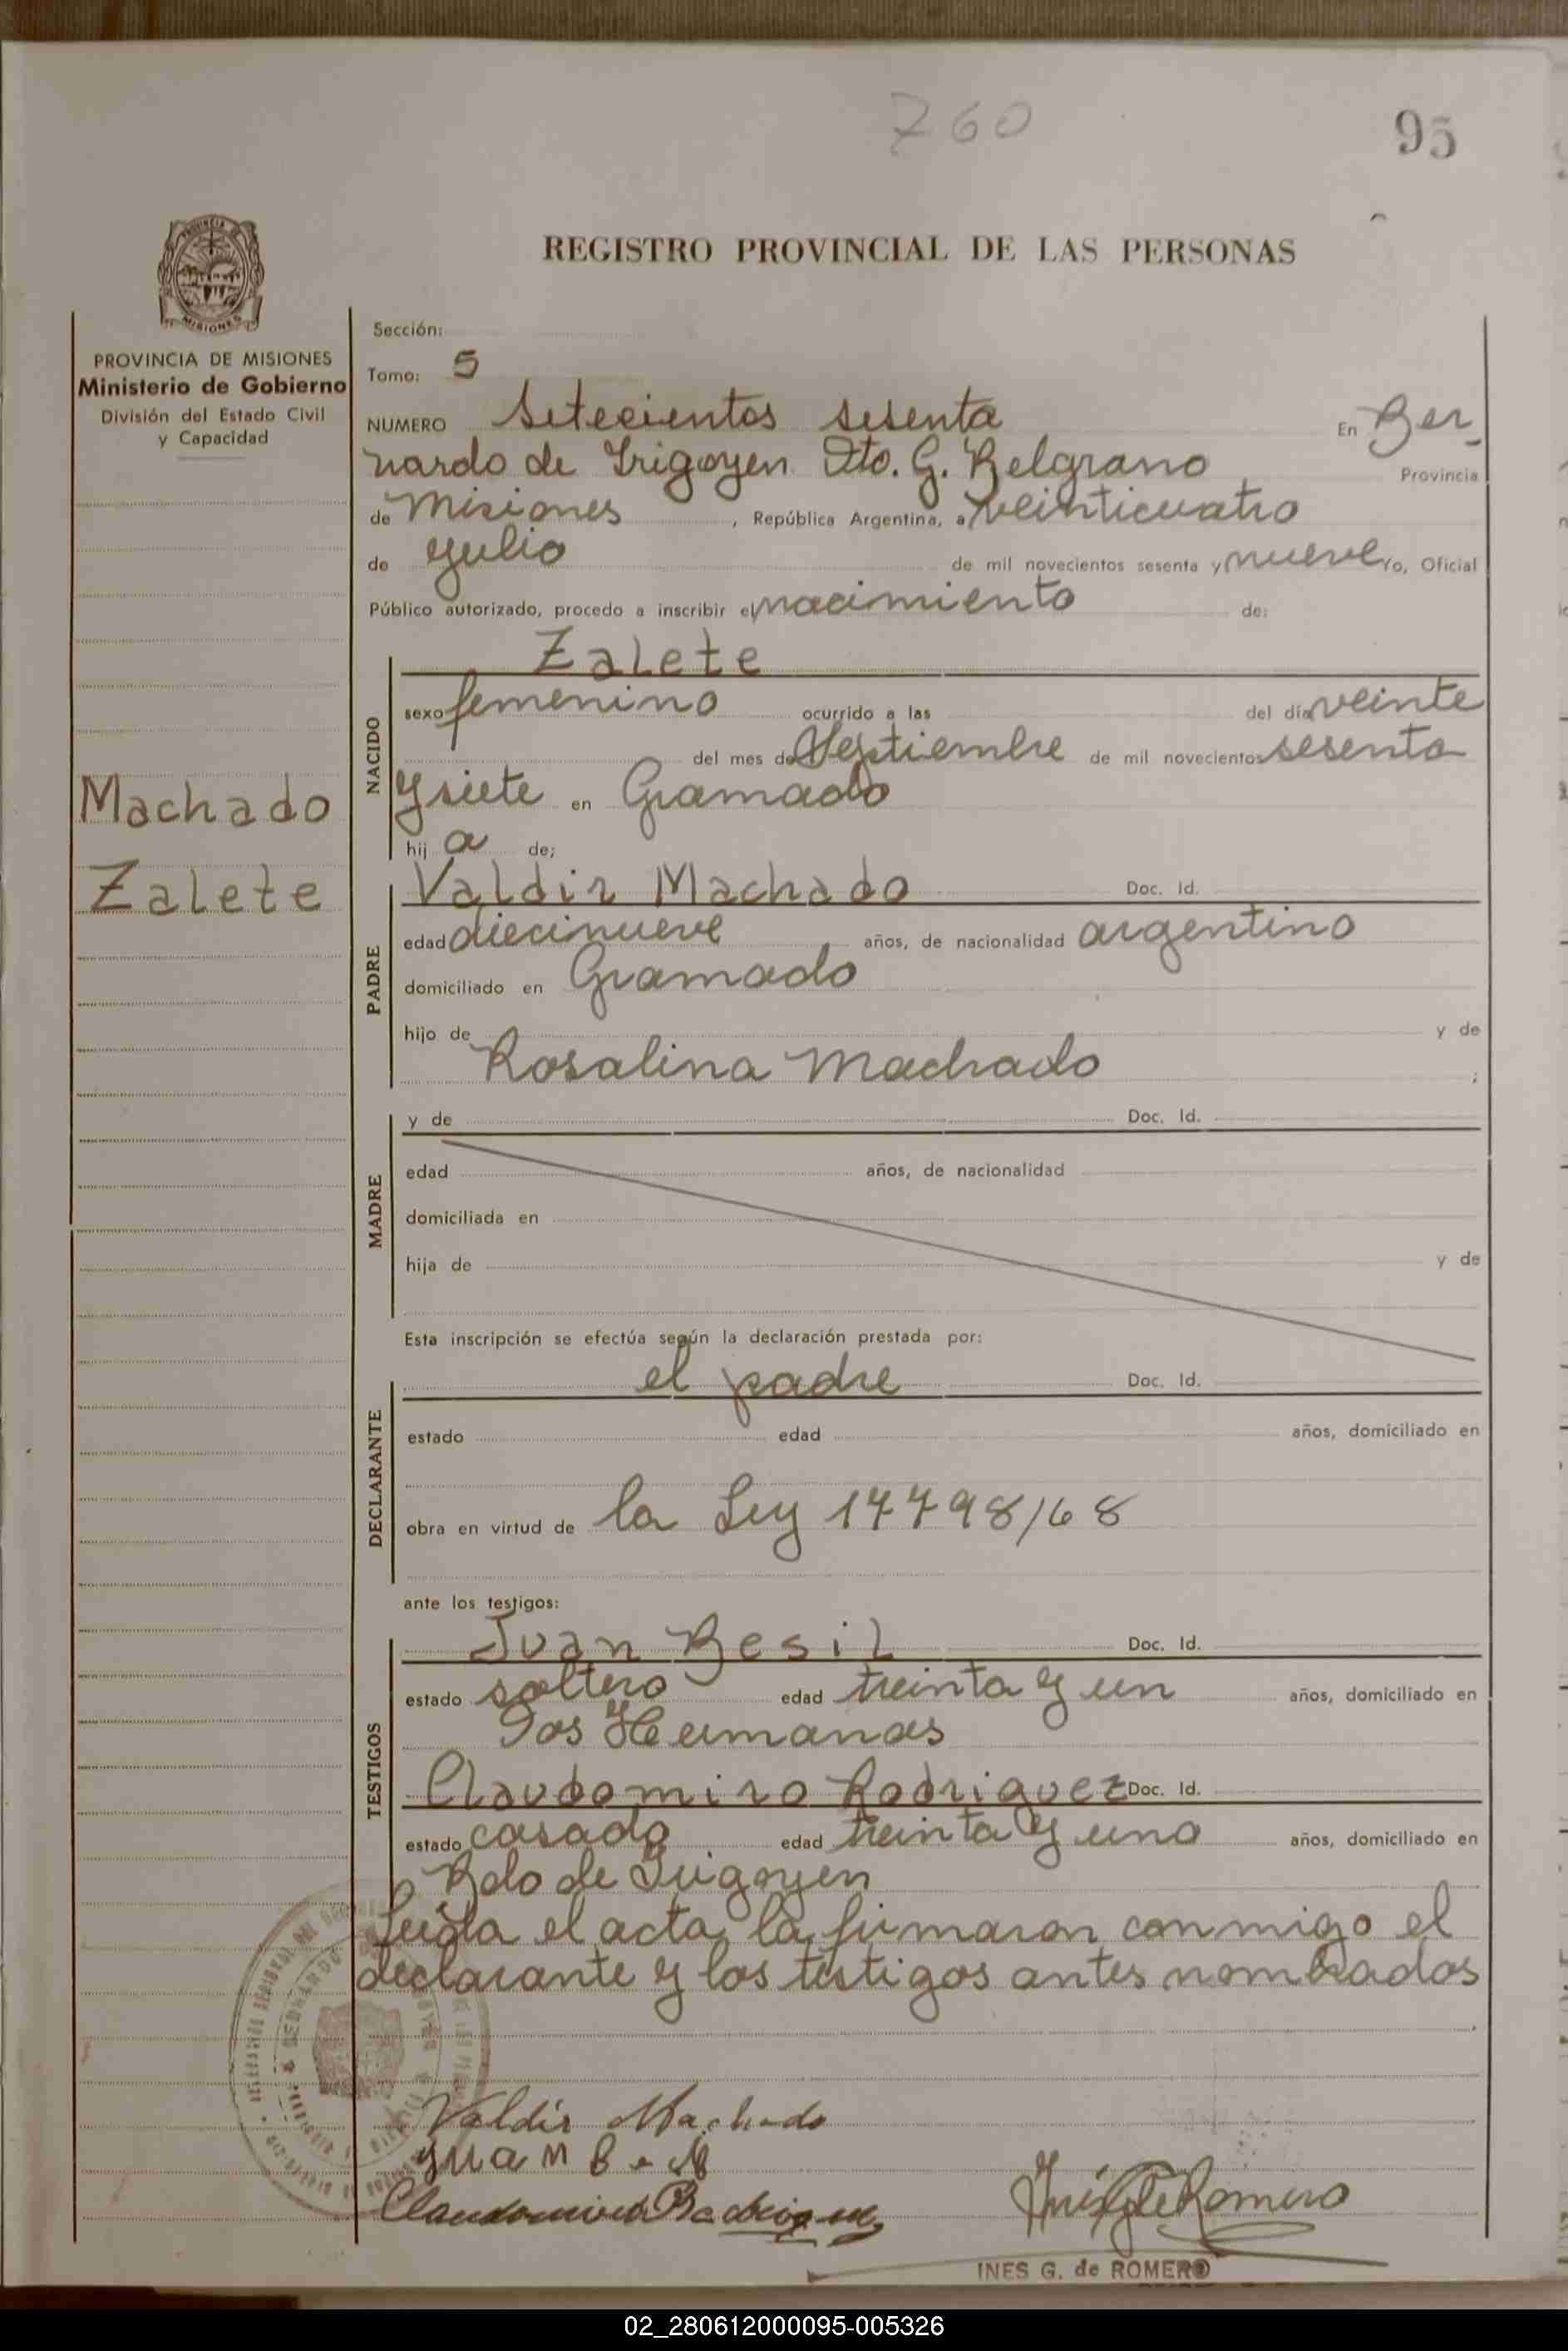 760
95
REGISTRO PROVINCIAL DE LAS PERSONAS
MISIONES
PROVINCIA DE MISIONES
Ministerio de Gobierno
División del Estado Civil
y Capacidad
Machado
Zalete
Sección:
Tomo: 5
NUMERO Setecientos sesenta En Ber-
nardo de Yrigoyen Dto. G. Belgrano Provincia
de Misiones, República Argentina, a veinticuatro
de Julio de mil novecientos sesenta y nueve Yo, Oficial
Público autorizado, procedo a inscribir el nacimiento de:
NACIDO
Zalete
sexo femenino ocurrido a las del día veinte
del mes de Septiembre de mil novecientos sesenta
y siete en Gramado
hij a de;
PADRE
Valdir Machado Doc. Id.
edad diecinueve años, de nacionalidad argentino
domiciliado en Gramado
hijo de y de
Rosalina Machado ;
MADRE
y de Doc. Id.
edad años, de nacionalidad
domiciliada en
hija de y de
Esta inscripción se efectúa según la declaración prestada por:
DECLARANTE
el padre Doc. Id.
estado edad años, domiciliado en
obra en virtud de la Ley 17798/68
ante los testigos:
TESTIGOS
Juan Besil Doc. Id.
estado soltero edad treinta y un años, domiciliado en
Dos Hermanas
Claudomiro Rodriguez Doc. Id.
estado casado edad treinta y uno años, domiciliado en
Bdo de Irigoyen
Leída el acta, la firmaron conmigo el
declarante y los testigos antes nombrados
Valdir Machado
Juan
Claudomiro
Inés G de Romero
INES G. de ROMERO
02_280612000095-005326